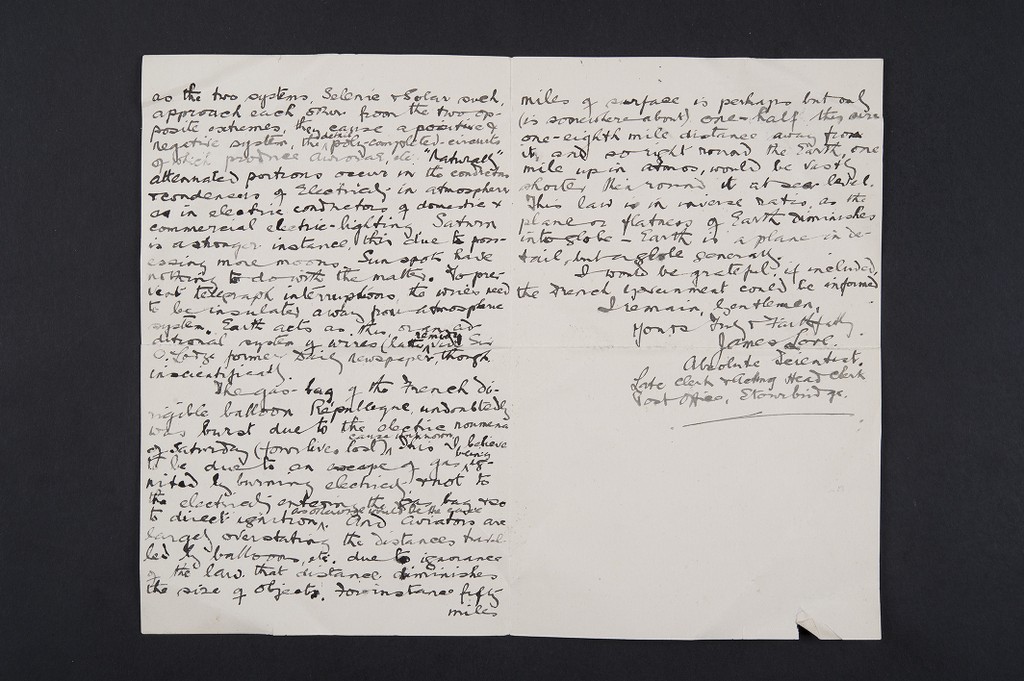 as the two systems, Selenic & Solar such,
approach each other from the two op-
posite extremes, they cause a positive &
negative system, the poly-completed-circuits
of which produce auroras, etc. "Naturally"
attenuated portions occur in the conductors
& condensers of Electricity in atmosphere
as in electric conductors of domestic &
commercial electric-lighting. Saturn
is a stronger instance, this due to poss-
essing more moons. Sun spots have
nothing to do with the matter. To pre-
vent telegraph interruptions, the wires need
to be insulated away from atmospheric
system. Earth acts as this, or an ad-
ditional system of wires (latter remedy vide Sir
O. Lodge former Daily newspaper, though
inscientifically
The gas-bag of the French di-
rigible balloon République, undoubtedly
was burst due to the electric noumena
of Saturday (four lives lost) cause unknown. This I believe
to be due to an escape of gas being ig-
nited by burning electricity & not to
the electricity entering the gas bag & so
to direct ignition, as otherwise would be the case. And Aviators are
largely overstating the distances travel-
led by balloons, etc. due to ignorance
of the law that distance diminishes
the size of objects. For instance fifty
miles
miles of surface is perhaps but only
(is somewhere about) one-half this size
one-eighth mile distance away from
it, and so right round the Earth, one
mile up in atmos, would be vastly
shorter than round it at sea level.
This law is in inverse ratio, as the
plane or flatness of Earth diminishes
into globe – Earth is a plane in de-
tail, but a globe generally
I would be grateful, if included,
the French Government could be informed
I remain, Gentlemen,
Yours Truly & Faithfully
James Love.
Absolute Scientist.
Late Clerk & Acting Head Clerk
Post Office, Stourbridge.